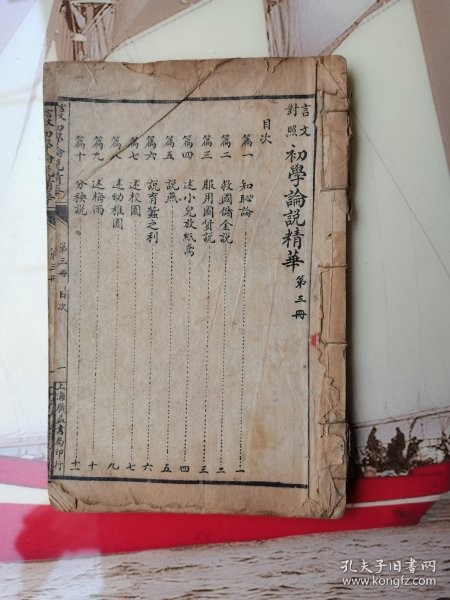 言文對照 初學論說精華 第三冊
目次
篇一 知恥論 一
篇二 救國儲金說 二
篇三 服用國貨說 三
篇四 述小兒放紙鳶 四
篇五 說燕 五
篇六 說育蠶之利 六
篇七 述校園 七
篇八 述幼稚園 八
篇九 述梅雨 九
篇十 分秧說 十
第三冊 目次 一 上海廣益書局印行
孔夫子旧书网
www.kongfz.com